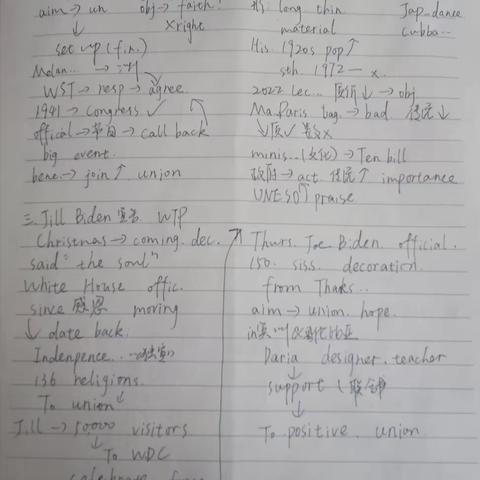 aim → un obj → faith!
↓ ×right
set up (f.in.)
Melan... →
WST → resp → agree
1941 → Congress ✓
offical → → call back
big event.
bene. → join ↑ union
三. Jill Biden 宣布 WTP
Christmas → coming. dec.
said "the soul"
White House offic.
since 感恩 moving
↓ date back.
Indenpence. ...
136 religions.
To union
Jill → 50000 visitors
↓ To WDC
long thin Jap-dance
material Cubba...
His 1920s pop ↑
sth. 1972 — x.
2022 Dec... 质疑 ↓ → obj
Ma. Paris bag. → bad 传统 ↓
minis... (文化) → Ten bill
政府 → act. 传统 ↑ importance
UNESO praise
Thurs. Joe Biden. official.
150. siss. decoration.
from Thanks...
aim → union. hope.
Daria designer. teacher
↓
support
↓
To positive. union